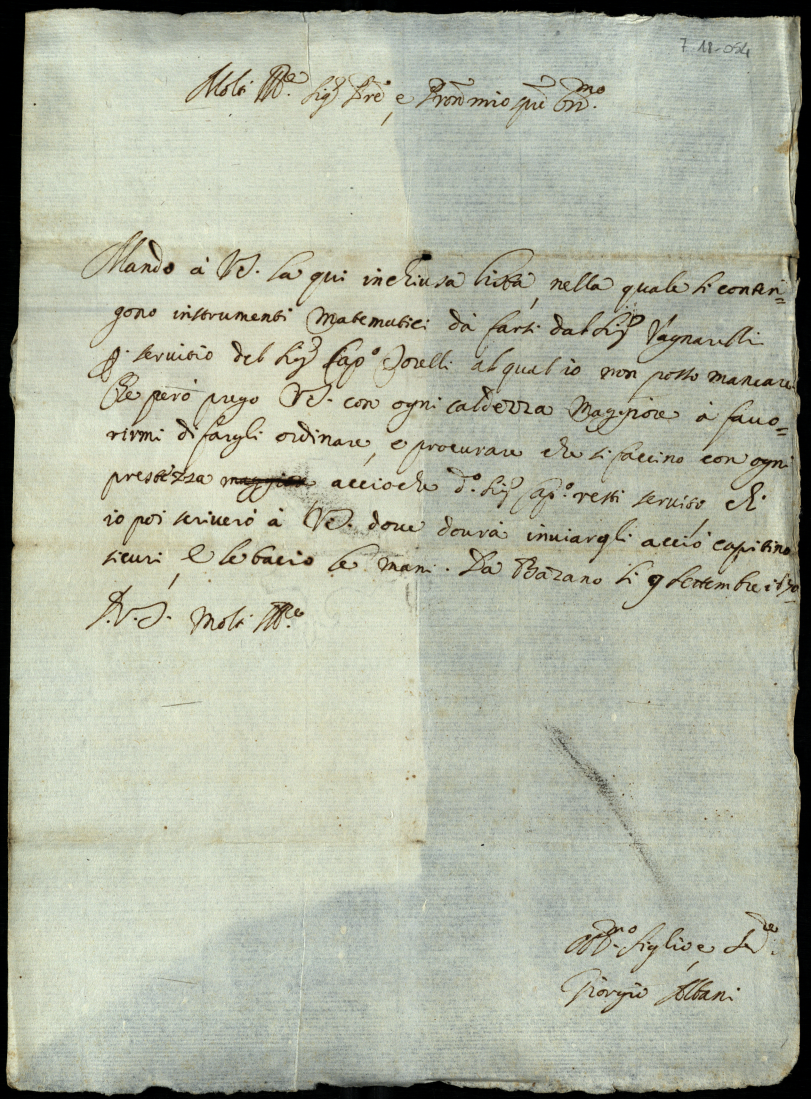 7-11-054
Molt' Ill.re Sig.r P.re e Pron mio
Mando à V.S. la qui inchiusa lista, nella quale si conten=
gono instrumenti Matematici dà farsi dal Sig.r Vagnarelli
servitio del Sig.r Cap.o al qual io non posso mancare
Che però prego V.S. con ogni caldezza Maggiore à favo=
rirmi di fargli ordinare, e procurare che si faccino con ogni
prestezza maggiore accioche d.o Sig.r Cap.o resti servito, ch'
io poi scriverò à V.S. dove dovrà inviargli acciò capitino
sicuri, e le bacio le mani. Da Bazano li 9 Settembre
D.V.S. Molt' Ill.re
figlio, e
Giorgio Albani